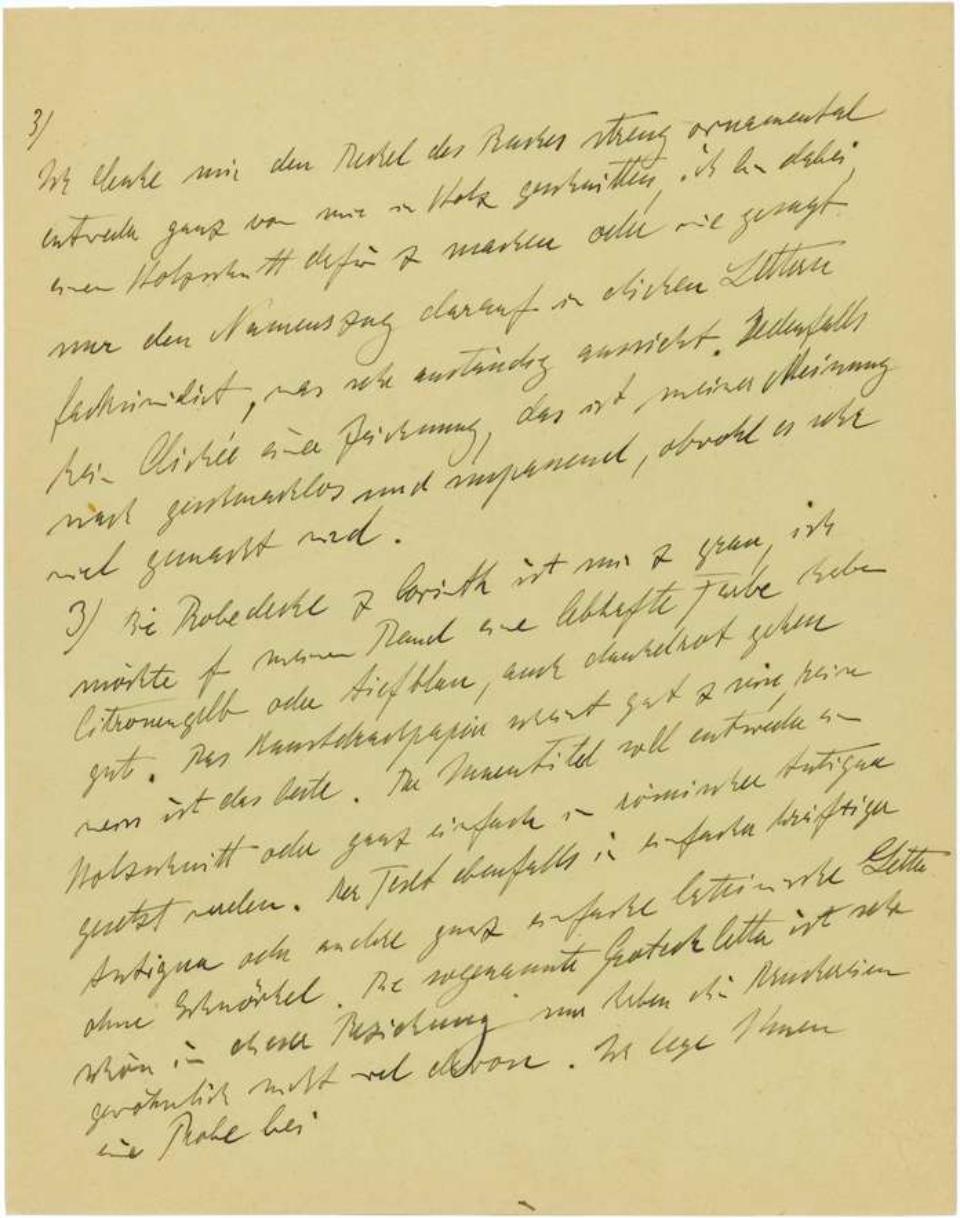 3/
Ich denke mir den Deckel des Buches streng ornamental
entweder ganz von mir in Holz geschnitten, ich bin dabei,
einen Holzschnitt dafür z machen oder wie gesagt
nur den Namenszug darauf in dicken Lettern
facksimiliert, was sehr anständig aussieht. Jedenfalls
kein Clichée einer Zeichnung, das ist meiner Meinung
nach geschmacklos und unpassend, obwohl es sehr
viel gemacht wird.
3) Die Probedecke z Corinth ist mir z grau, ich
möchte f meinen Band eine lebhafte Farbe haben
Citronengelb oder tiefblau, auch dunkelrot gehen
gut. Das Kunstdruckpapier scheint gut z sein, rein
weiss ist das beste. Der Innentitel soll entweder in
Holzschnitt oder ganz einfach in römischer Antiqua
gesetzt werden. Der Text ebenfalls in einfacher kräftiger
Antiqua oder andere ganz einfache lateinische Letter
ohne Schnörkel. Die sogenannte Groteskletter ist sehr
schön in dieser Beziehung nur haben die Druckereien
gewöhnlich nicht viel davon. Ich lege Ihnen
eine Probe bei